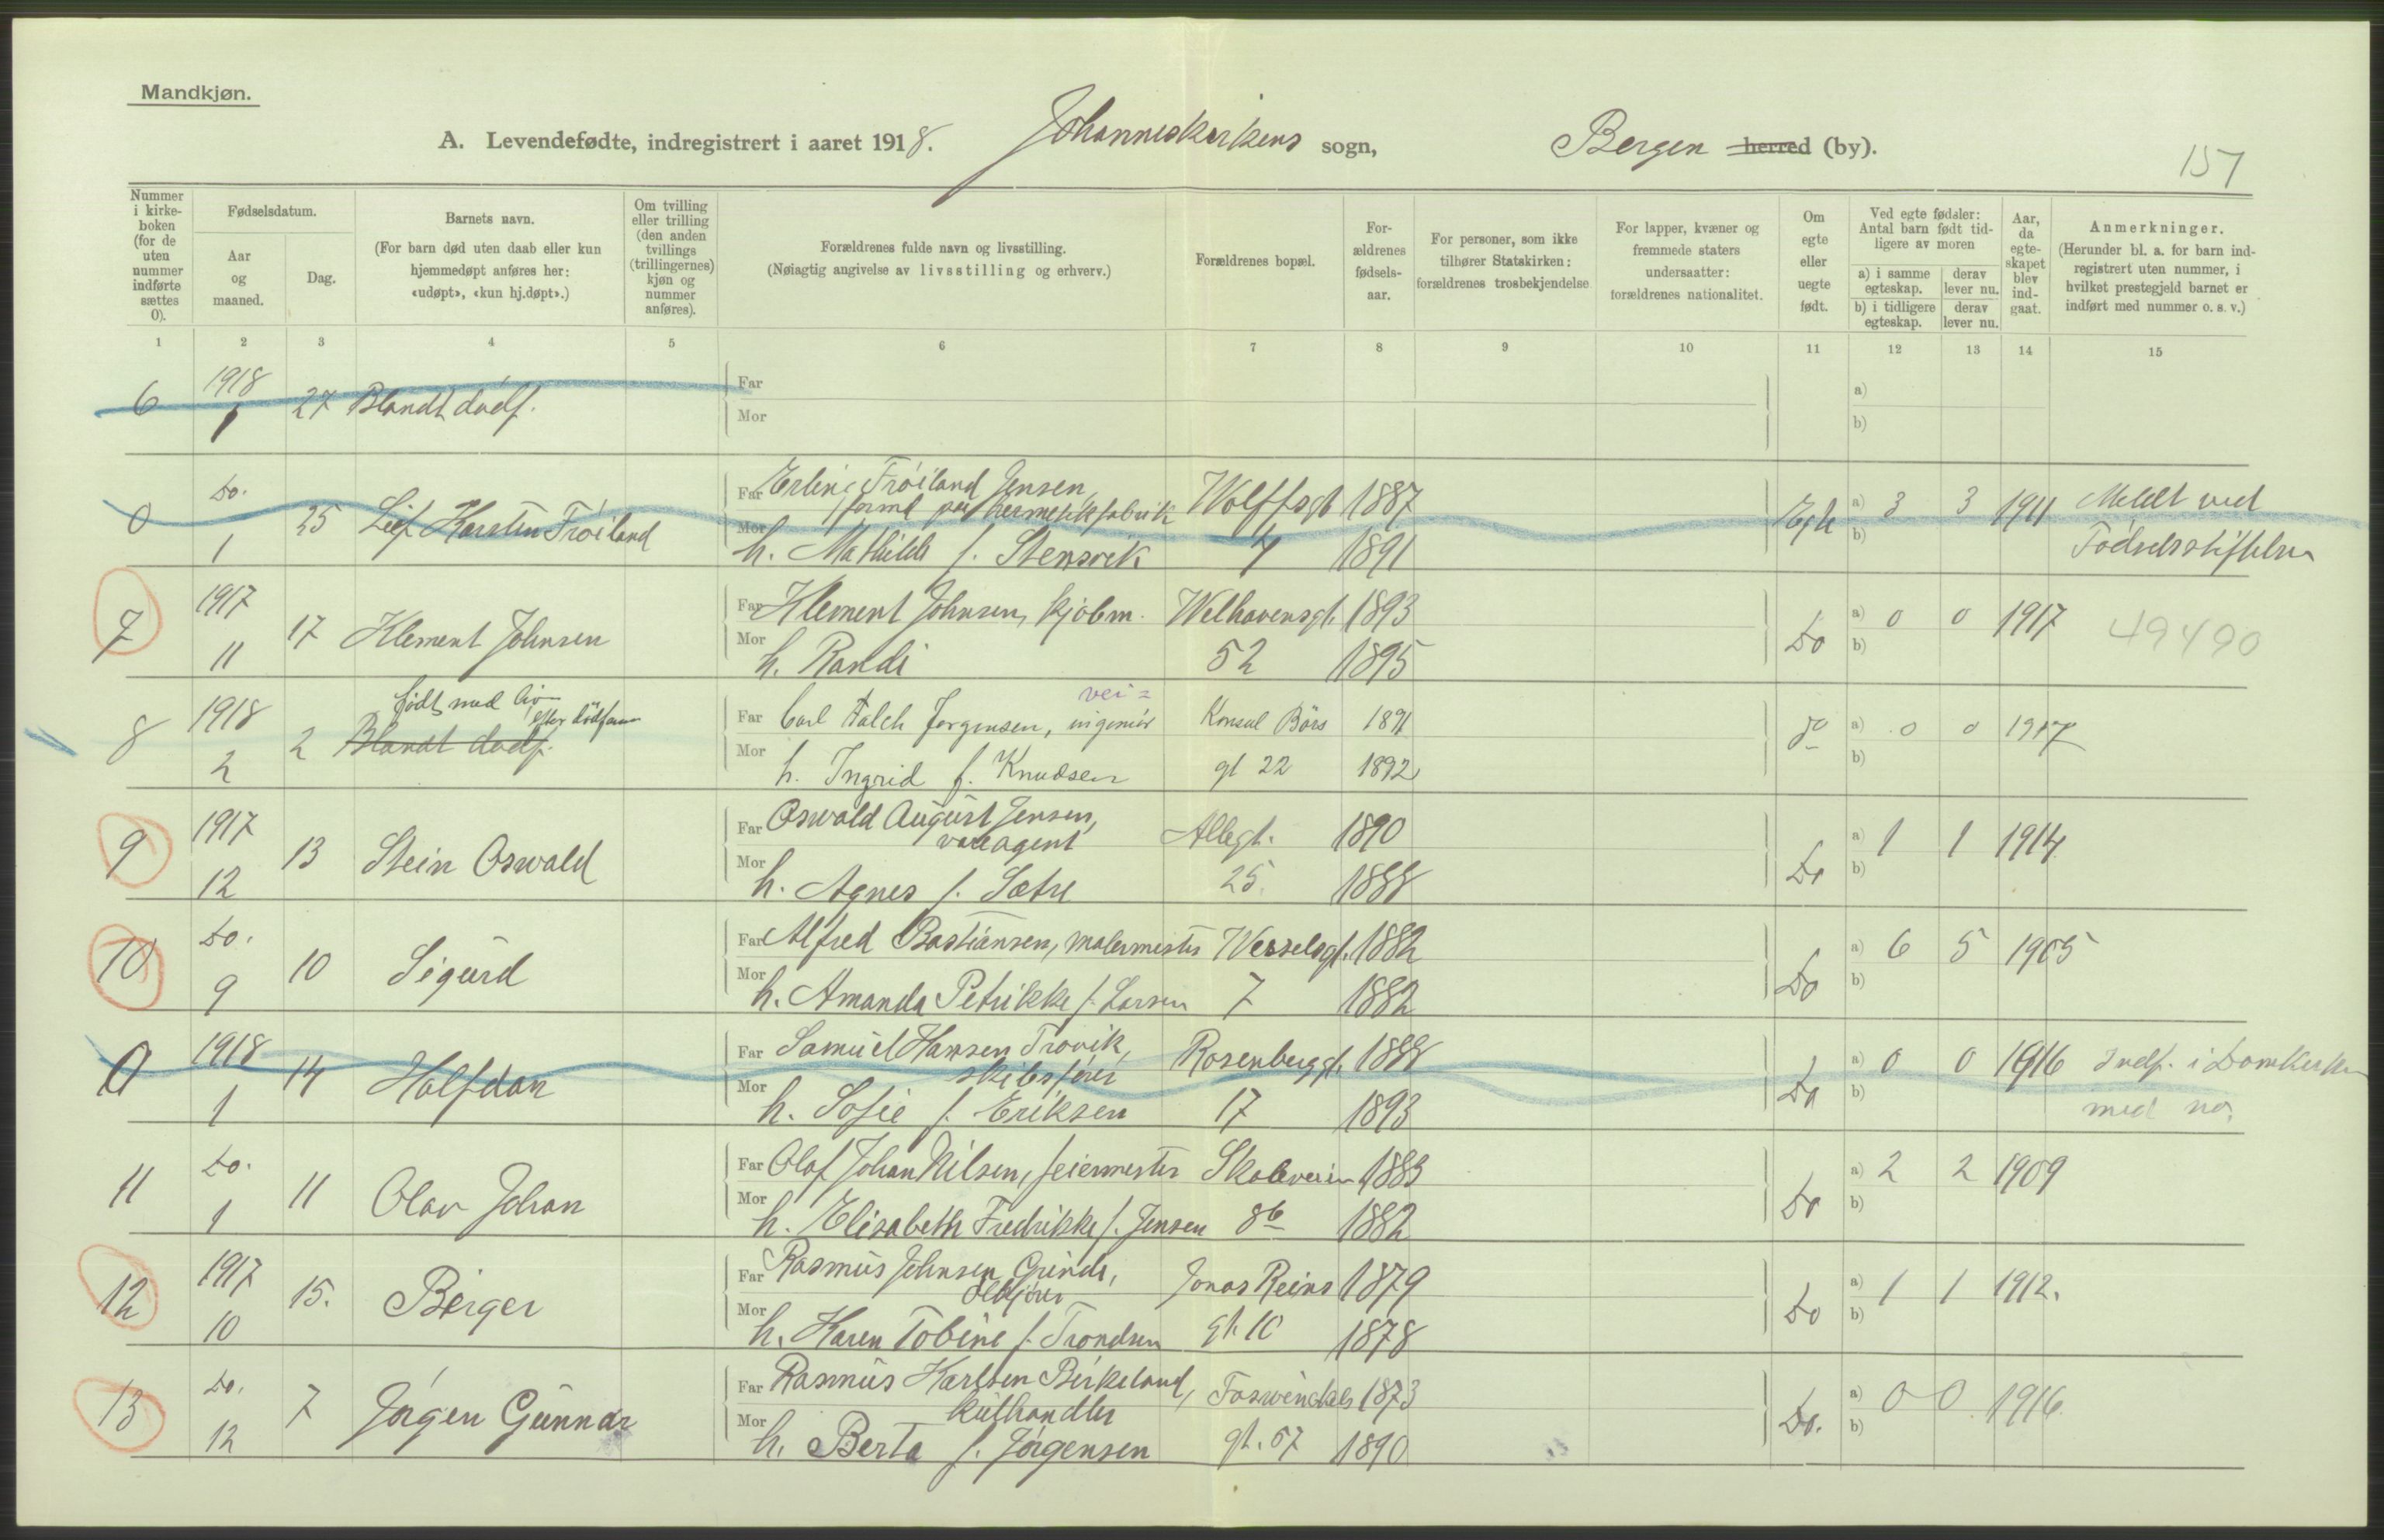 Mandkjøn.
A. Levendefødte, indregistrert i aaret 1918. Johanneskirkens sogn, Bergen herred (by).
157
Nummer i kirke-boken (for de uten nummer indførte sættes 0).
Fødselsdatum.
Aar og maaned.
Dag.
Barnets navn.
(For barn død uten daab eller kun hjemmedøpt anføres her: «udøpt», «kun hj.døpt».)
Om tvilling eller trilling (den anden tvillings (trillingernes) kjøn og nummer anføres).
Forældrenes fulde navn og livsstilling.
(Nøiagtig angivelse av livsstilling og erhverv.)
Forældrenes bopæl.
For-ældrenes fødsels-aar.
For personer, som ikke tilhører Statskirken: forældrenes trosbekjendelse.
For lapper, kvæner og fremmede staters undersaatter: forældrenes nationalitet.
Om egte eller uegte født.
Ved egte fødsler: Antal barn født tid-ligere av moren
a) i samme egteskap. derav lever nu.
b) i tidligere egteskap. derav lever nu.
Aar, da egte-skapet blev ind-gaat.
Anmerkninger.
(Herunder bl. a. for barn ind-registrert uten nummer, i hvilket prestegjeld barnet er indført med nummer o. s. v.)
1 2 3 4 5 6 7 8 9 10 11 12 13 14 15
6 1918 1 27 Blandt dødf. Far a)
Mor b)
0 Do. 1 25 Leif Karsten Fröiland Far Erling Fröiland Jensen, Wolffsgt 1887 Egte a) 3 3 1911 Meldt ved
formd paa hermetikfabrik
Mor h. Mathilde f. Stensvik 7 1891 b) Fødselsstiftelsen
7 1917 11 17 Klement Johnsen Far Klement Johnsen, kjøbm. Welhavensgt. 1893 Do a) 0 0 1917 49490
Mor h. Randi 52 1895 b)
født med liv
efter dödfann
8 1918 2 2 Blandt dødf. Far Carl Falch Jørgensen, vei= ingeniør Konsul Börs 1891 do a) 0 0 1917
Mor h. Ingrid f. Knudsen gt 22 1892 b)
9 1917 12 13 Stein Oswald Far Oswald August Jensen, Allegt. 1890 Do a) 1 1 1914
vareagent
Mor h. Agnes f. Sætre 25. 1888 b)
10 Do. 9 10 Sigurd Far Alfred Bastiansen, malermester Wesselsgt. 1882 Do a) 6 5 1905
Mor h. Amanda Petrikke f. Larsen 7 1882 b)
0 1918 1 14 Halfdan Far Samuel Hansen Trovik, Rosenberggt. 1888 Do a) 0 0 1916 Indf. i Domkirken
skibsfører
Mor h. Sofie f. Eriksen 17 1893 b) med no.
11 Do. 1 11 Olav Johan Far Olaf Johan Nilsen, feiermester Skoleveien 1883 Do a) 2 2 1909
Mor h. Elisabeth Fredrikke f. Jensen 8b 1882 b)
12 1917 10 15. Birger Far Rasmus Johnsen Grinde, Jonas Reins 1879 Do a) 1 1 1912.
ølkjører
Mor h. Karen Tobine f. Trondsen gt. 10 1878 b)
13 Do. 12 7 Jørgen Gunnar Far Rasmus Karlsen Birkeland, Foswinckels 1873 Do. a) 0 0 1916.
kulhandler
Mor h. Berta f. Jørgensen gt. 57 1890 b)